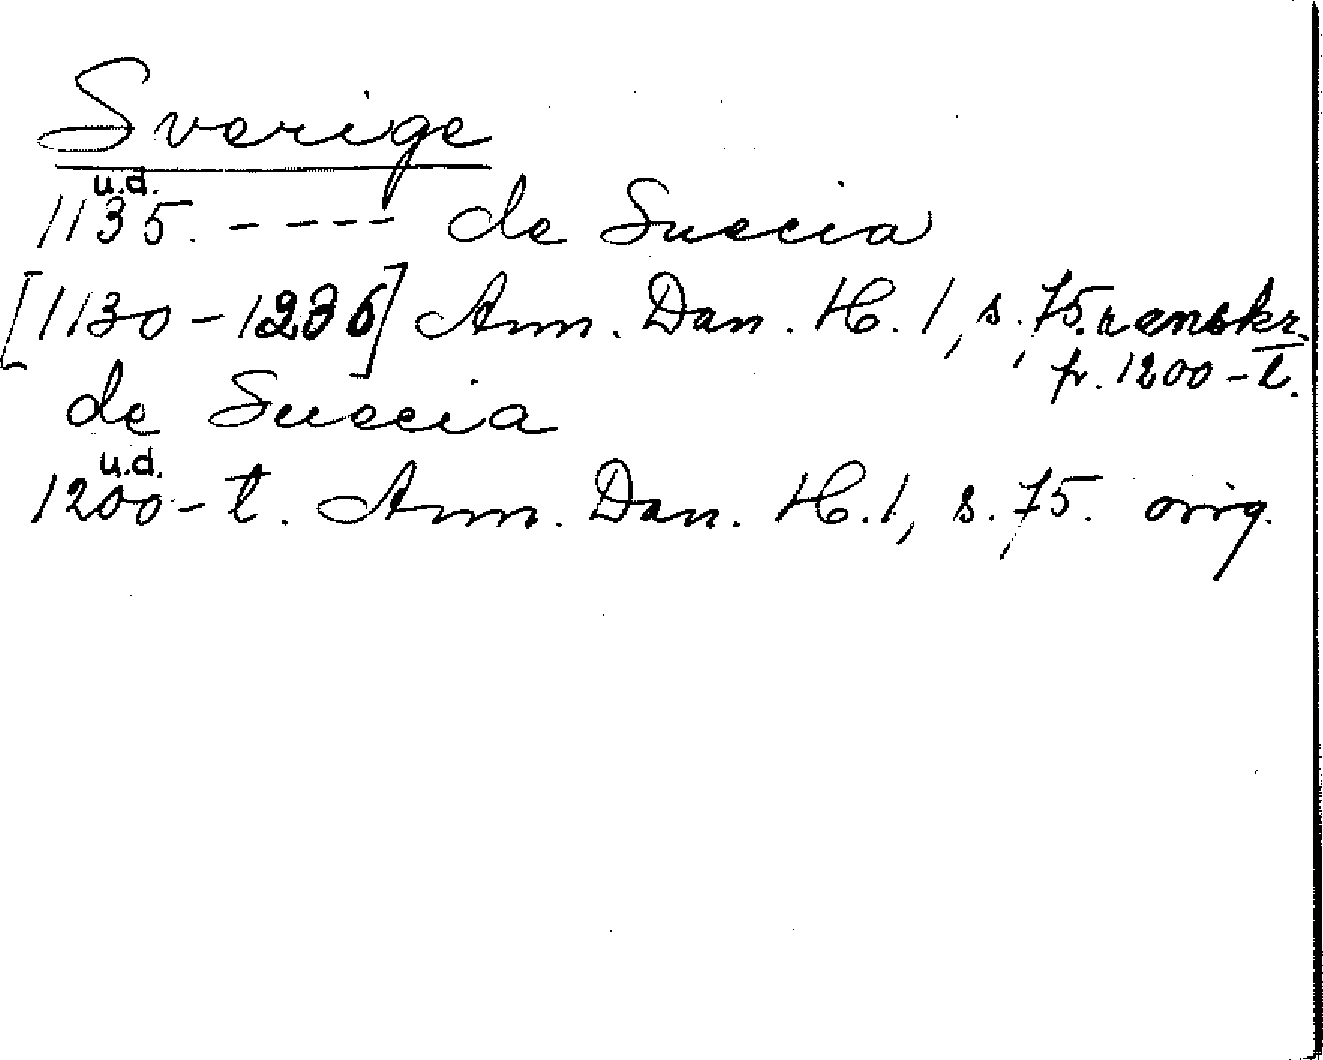 Sverige
u.d.
1135. ---- de Suecia
[1130-1286] Ann. Dan. H. 1, s. 75. renskr.
fr. 1200-t.
de Suecia
u.d.
1200-t. Ann. Dan. H. 1, s. 75. orig.